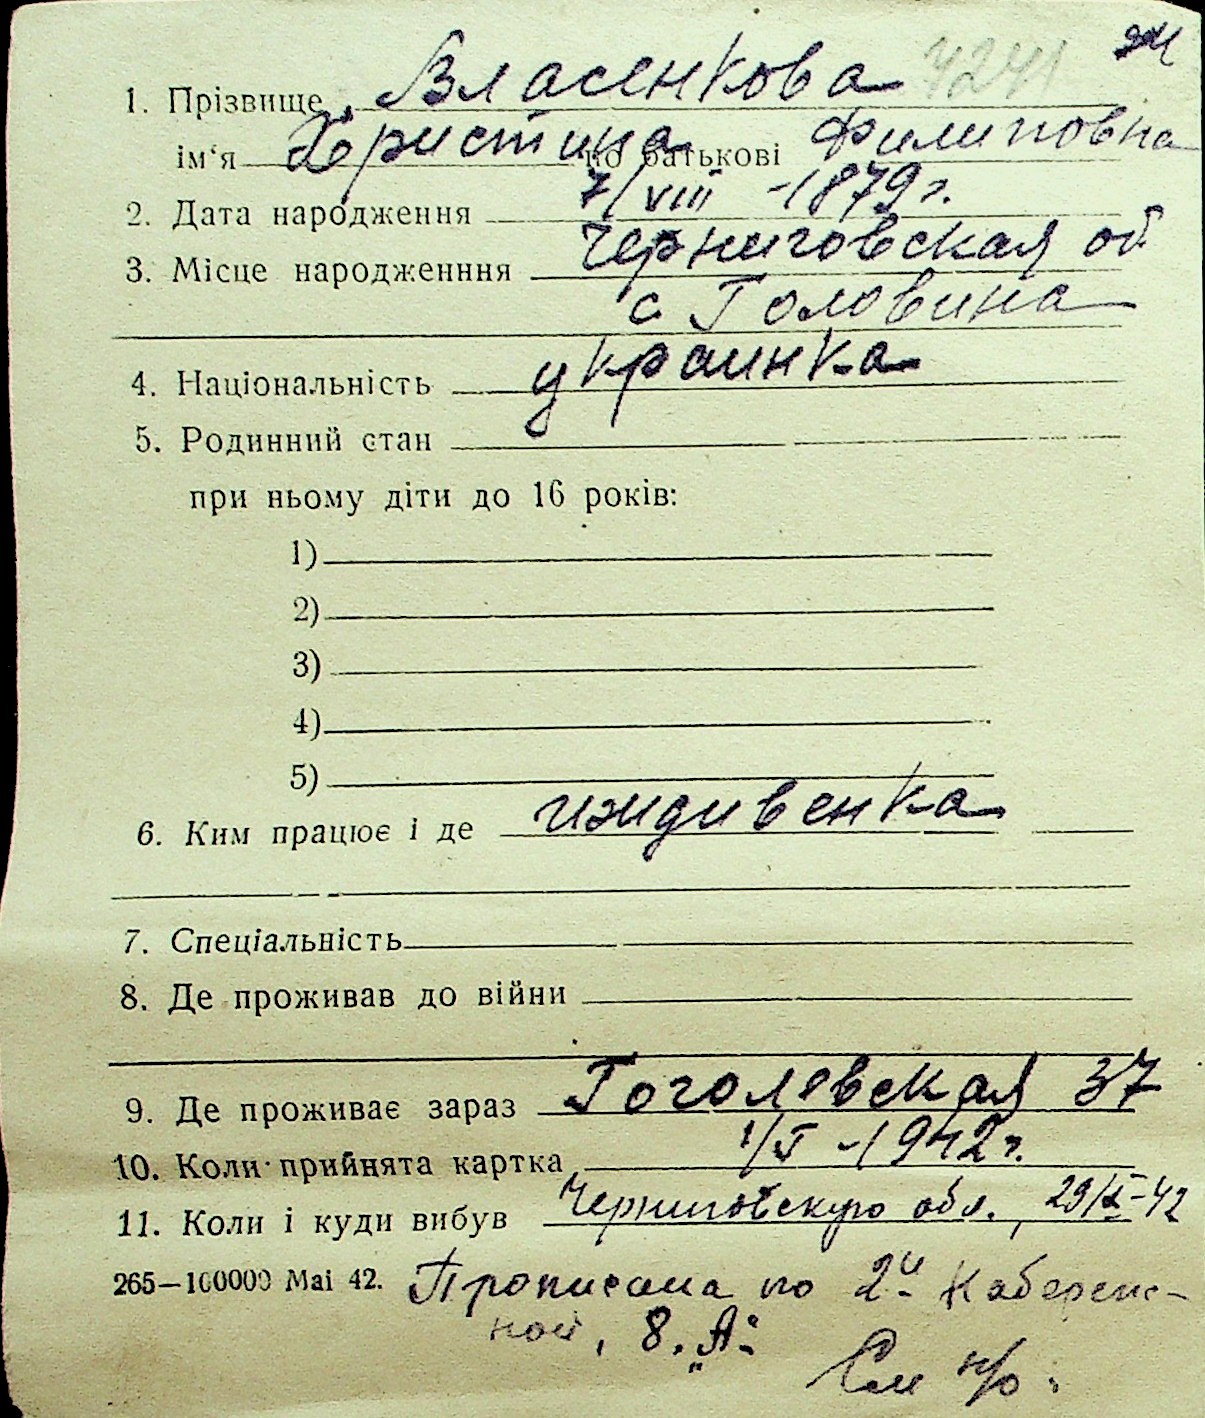 7241
1. Прізвище Власенкова
ім‘я Христина по батькові Филиповна
2. Дата народження 7/VIII -1879 г.
3. Місце народженння Черниговская об
с Головина
4. Національність украинка
5. Родинний стан
при ньому діти до 16 років:
1)
2)
3)
4)
5)
6. Ким працює і де иждивенка
7. Спеціальність
8. Де проживав до війни
9. Де проживає зараз Гоголевская 37
10. Коли прийнята картка -1942 г.
11. Коли і куди вибув Черниговскую обл., 29/X-42
265—100000 Mai 42. Прописана по 2й
ной, 8. „А"
См н/о.